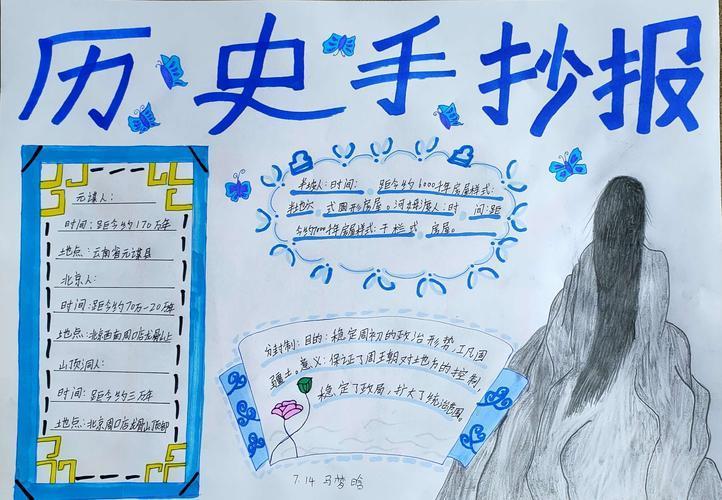 历史手抄报
元谋人:
时间:距今约170万年
地点:云南省元谋县
北京人:
时间:距今约70万-20万年
地点:北京西南周口店龙骨山上
山顶洞人:
时间:距今约三万年
地点:北京周口店龙骨山顶部
半坡人:时间:距今约6000年房屋样式:
半地穴式圆形房屋。河姆渡人:时间:距
今约7000年房屋样式:干栏式房屋。
分封制:目的:稳定周初的政治形势,巩固
疆土。意义:保证了周王朝对地方的控制,
稳定了政局,扩大了统治范围。
7.14 马梦晗